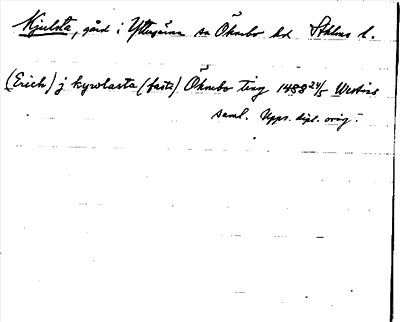 Kjulsta, gård i Ytterjärna sn Öknebo hd Sthlms l.
(Erich) j kywlasta (faste) Öknebo ting 1488 24/5 Westins
saml. Upps. dipl. orig.